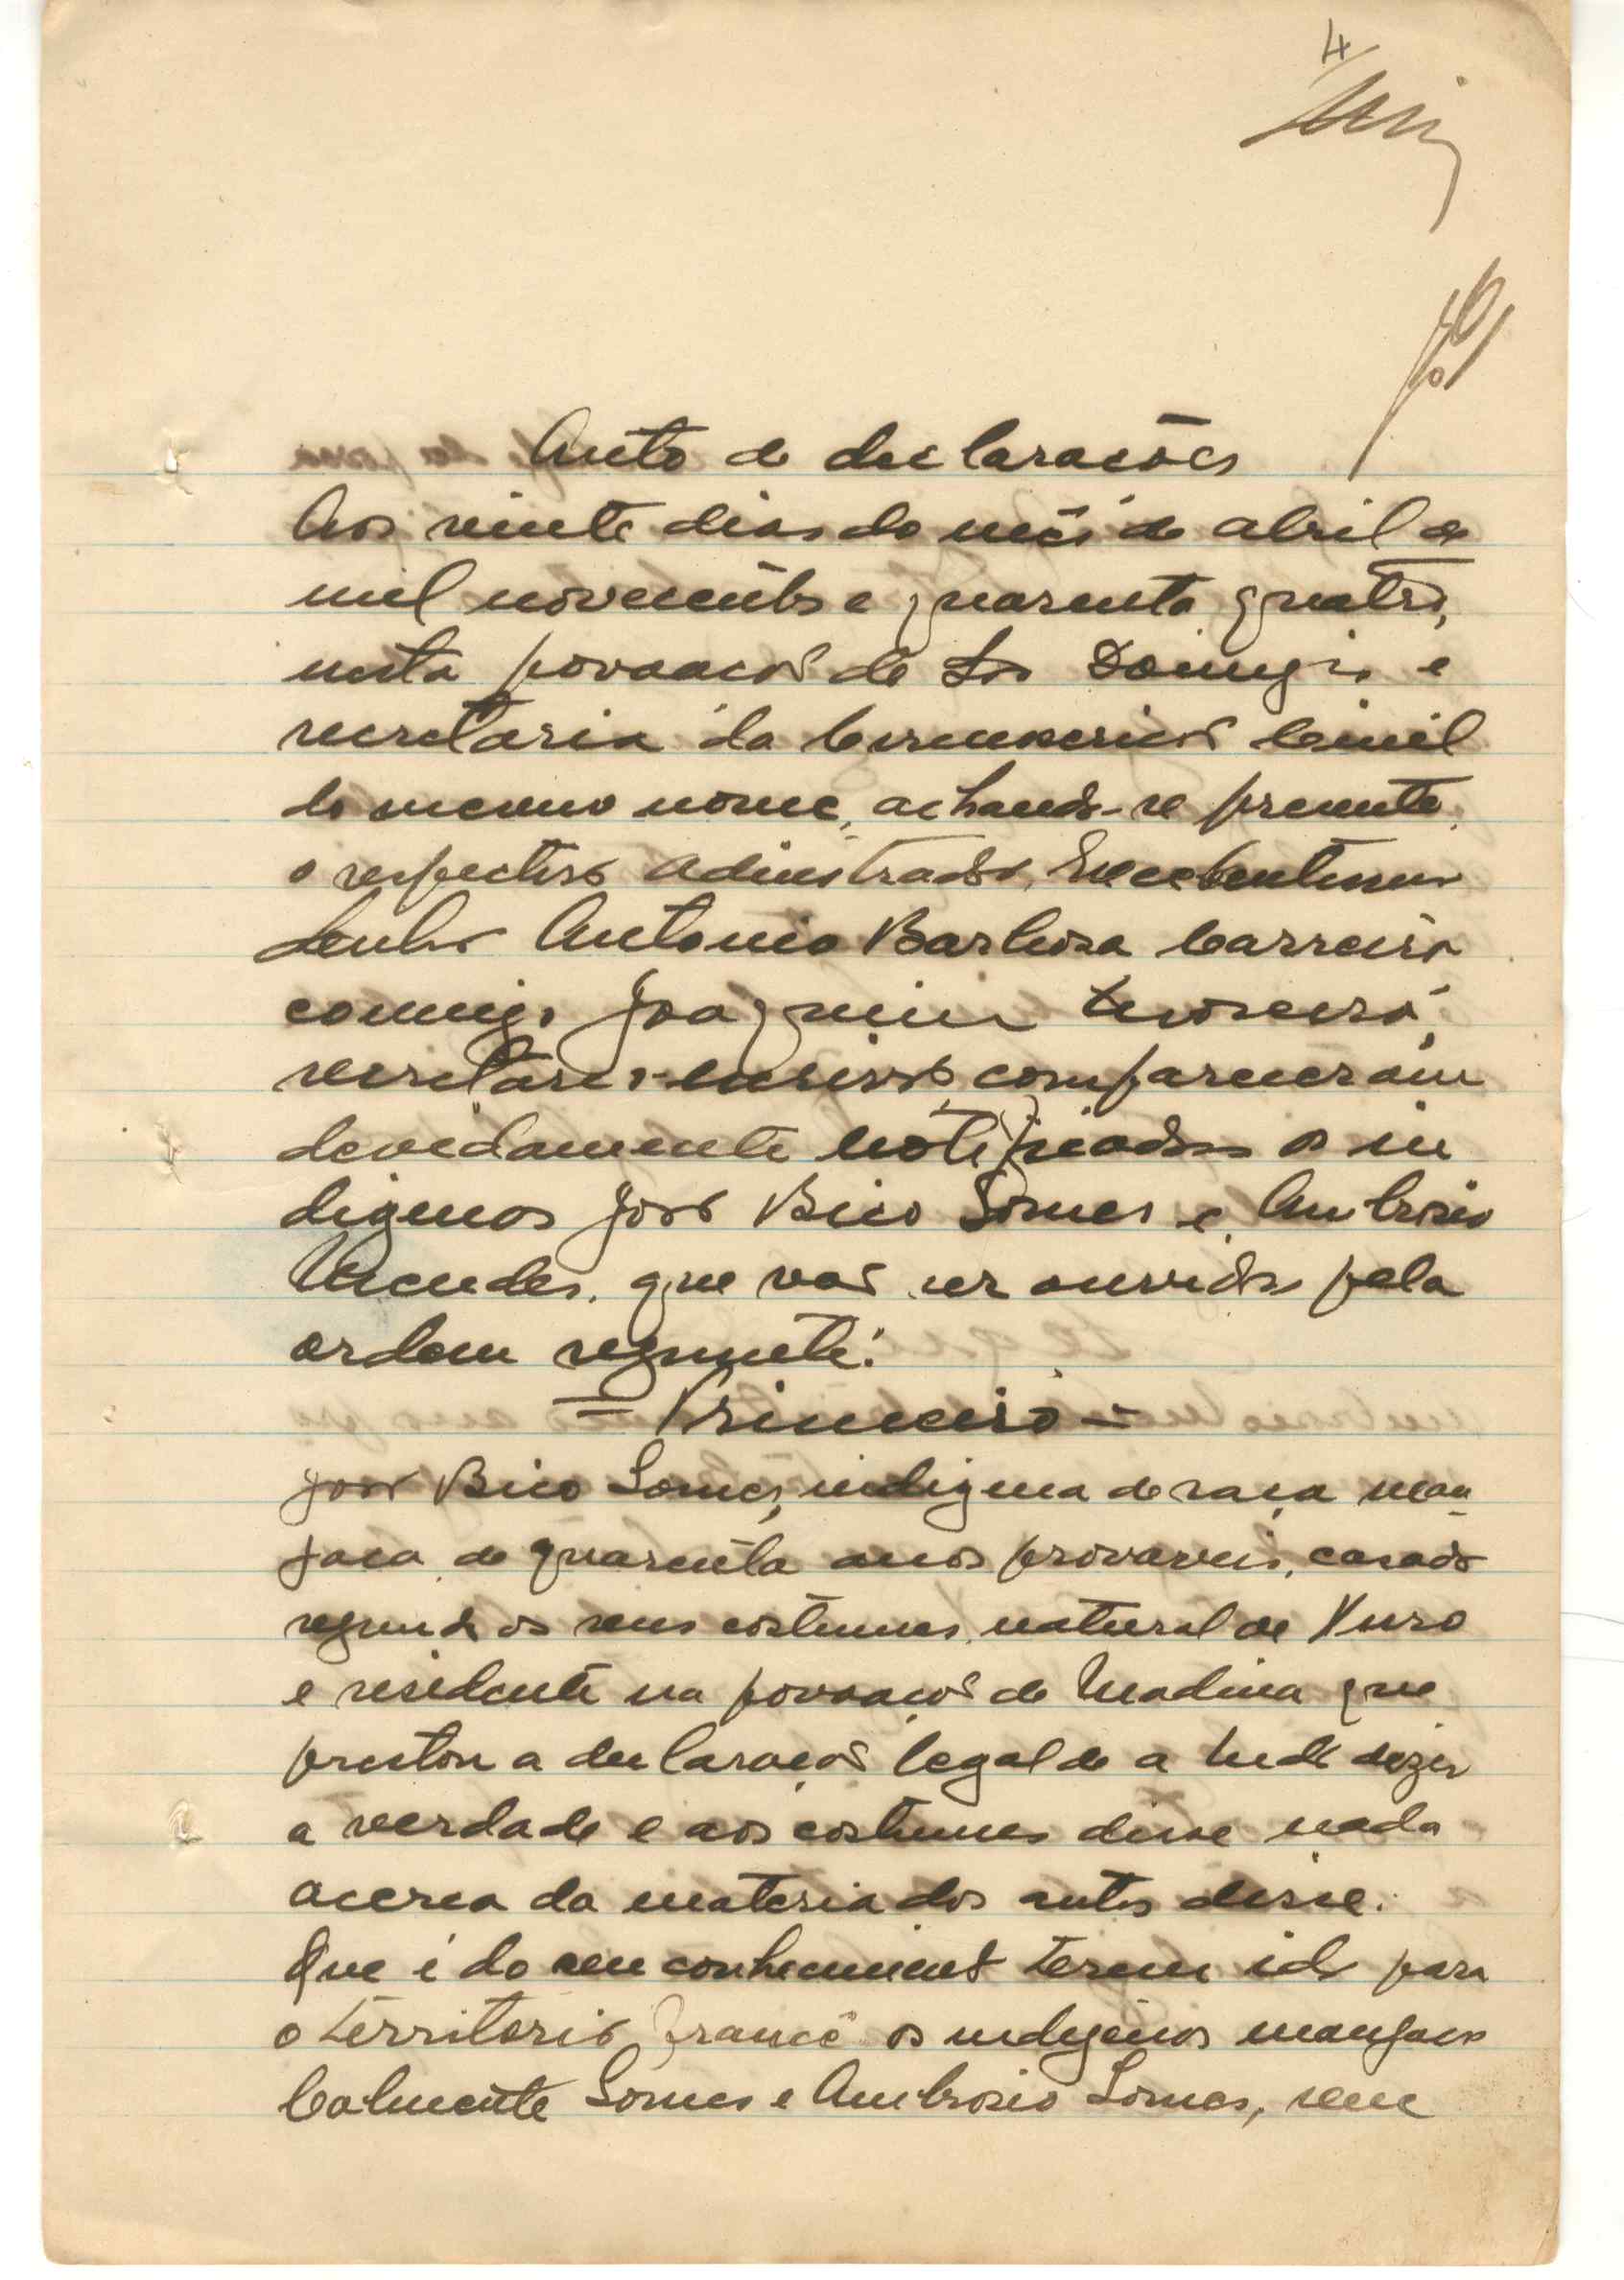 4
Auto de declarações
Aos vinte dias do mês de abril de
mil novecentos e quarenta quatro,
nesta povoação de São Domingos e
secretaria da Circunscrição Civil
do mesmo nome, achando-se presente
o respectivo Administrador, Excelentissimo
Senhor Antonio Barbosa Carreira
comigo Joaquim Moreira,
secretario-escrivão compareceram
devidamente notificados os in
digenas João Bico Gomes e Ambrosio
Mendes, que vão ser ouvidos pela
ordem seguinte:
= Primeiro =
João Bico Gomes, indigena de raça man
jaca, de quarenta anos provaveis, casado
segundo os seus costumes, natural de
e residente na povoação de Madina que
prestou a declaração legal de a tudo dizer
a verdade e aos costumes disse nada
acerca da materia dos autos disse:
Que é do seu conhecimento terem ido para
o territorio francê os indigenas manjacos
Gomes e Ambrosio Gomes, sem